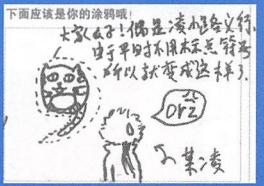 下面应该是你的涂鸦哦！
大家好！偶是凌小路名义行，
由于平时不用标点符号
所以就变成这样了
Orz
某凌